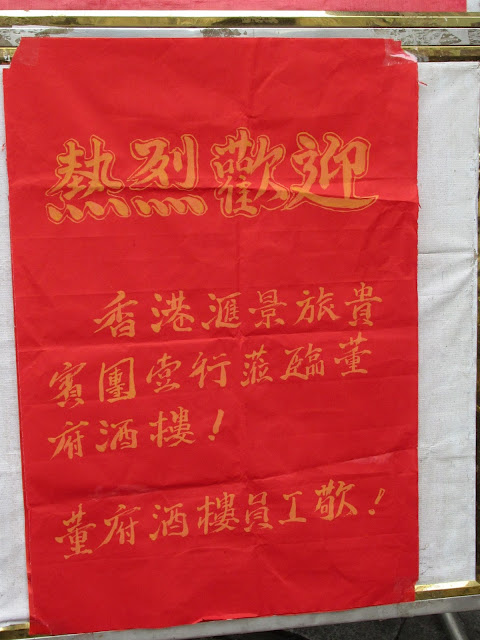 熱烈歡迎
香港滙景旅貴
賓團壹行蒞臨董
府酒樓！
董府酒樓員工敬！